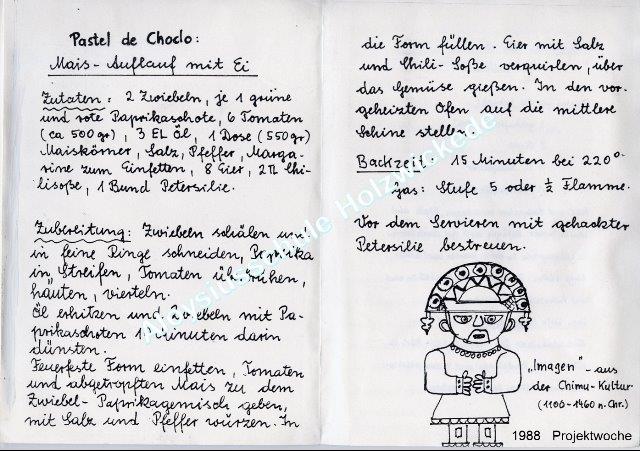 Pastel de Choclo:
Mais-Auflauf mit Ei
Zutaten: 2 Zwiebeln, je 1 grüne
und rote Paprikaschote, 6 Tomaten
(ca 500 gr), 3 EL Öl, 1 Dose (550 gr)
Maiskörner, Salz, Pfeffer, Marga-
rine zum Einfetten, 8 Eier, 2 TL Chi-
lisoße, 1 Bund Petersilie.
Zubereitung: Zwiebeln schälen und
in feine Ringe schneiden, Paprika
in Streifen, Tomaten überbrühen,
häuten, vierteln.
Öl erhitzen und Zwiebeln mit Pa-
prikaschoten 10 Minuten darin
dünsten.
Feuerfeste Form einfetten, Tomaten
und abgetropften Mais zu dem
Zwiebel-Paprikagemisch geben,
mit Salz und Pfeffer würzen. In
die Form füllen. Eier mit Salz
und Chili-Soße verquirlen, über
das Gemüse gießen. In den vor-
geheizten Ofen auf die mittlere
Schine stellen.
Backzeit: 15 Minuten bei 220°
Gas: Stufe 5 oder ½ Flamme.
Vor dem Servieren mit gehackter
Petersilie bestreuen.
"Imagen" - aus
der Chimu-Kultur
(1100-1460 n. Chr.)
1988 Projektwoche
Aloysiusschule Holzwickede